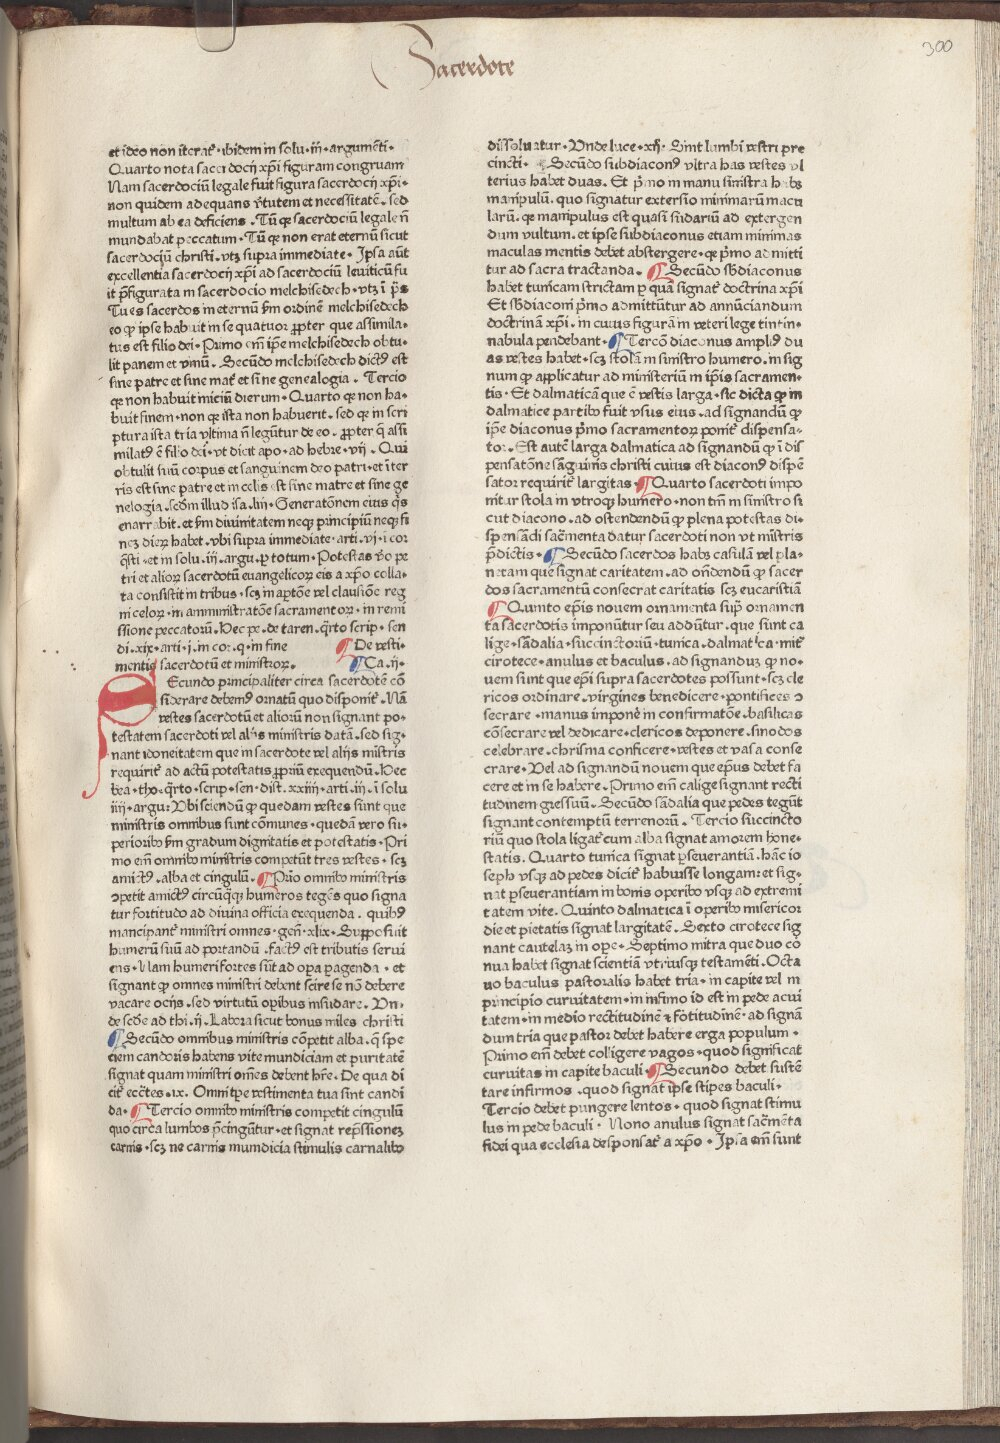 Sacerdote
300
et ideo non iterat᷑ · ibidem in solu · iiij · argumēti ·
Quarto nota sacerdocij xp̄i figuram congruam
Nam sacerdociū legale fuit figura sacerdocij xp̄i ·
non quidem adequans v̄tutem et necessitatē . sed
multum ab ea deficiens . Tū qꝫ sacerdociū legale n̄
mundabat peccatum · Tū qꝫ non erat eternū sicut
sacerdociū christi . vtꝫ supra immediate · Ipsa aūt
excellentia sacerdocij xp̄i ad sacerdociū leuiticū fu
it p̄figurata in sacerdocio melchisedech · vtꝫ ī p̄s
Tu es sacerdos in eternū s̄m ordinē melchisedech
eo ꝙ ipse habuit in se quatuor ꝓpter que assimila-
tus est filio dei · Primo em̄ ip̄e melchisedech obtu-
lit panem et vinū . Secūdo melchisedech dictꝰ est
sine patre et sine mat᷑ et sine genealogia . Tercio
qꝫ non habuit iniciū dierum · Quarto qꝫ non ha-
buit finem · non qꝫ ista non habuerit . sed qꝫ in scri
ptura ista tria vltima n̄ legūtur de eo . ꝓpter q̄ assi
milatꝰ ē filio dei · vt dicit apo · ad hebre · vij · Qui
obtulit suū corpus et sanguinem deo patri · et ī ter
ris est sine patre et in celis est sine matre et sine ge
nelogia . scd̄m illud isa . liij · Generatōnem eius q̇s
enarrabit . et s̄m diuinitatem neqꝫ principiū neqꝫ fi
neꝫ dieꝝ habet . vbi supra immediate · arti . vj · i cor
q̄sti · et in solu . iij . argu · ꝑ totum · Potestas v̄o pe
tri et alioꝝ sacerdotū euangelicoꝝ eis a xp̄o colla-
ta consistit in tribus · scꝫ in aptōe vel clausiōe reg
ni celoꝝ · in amministratōe sacramentoꝝ · in remi
ssione peccatorū . Hec pe . de taren . q̄rto scrip · sen
di . xix · arti · j . in co . q · in fine ¶ De vesti-
mentis sacerdotū et ministroꝝ . ¶ Ca . ij ·
Secundo principaliter circa sacerdotē cō
siderare debemꝰ ornatū quo disponit᷑ . Nā
vestes sacerdotū et aliorū non signant po-
testatem sacerdoti vel alijs ministris datā . sed sig-
nant idoneitatem que in sacerdote vel alijs mīstris
requirit᷑ ad actū potestatis ꝓpriū exequendū . Hec
bea · tho · q̄rto · scrip · sen · dist . xxiiij · arti . iij · ī solu
iiij · argu : Vbi sciendū ꝙ quedam vestes sunt que
ministris omnibus sunt cōmunes · quedā vero su-
perioribꝰ s̄m gradum dignitatis et potestatis · Pri
mo em̄ omnibꝰ ministris competūt tres vestes · scꝫ
amictꝰ . alba et cingulū . ¶ Prīo omnibꝰ ministris
opetit amictꝰ circūq̄qꝫ humeros tegēs quo signa
tur fortitudo ad diuina officia exequenda . quibꝰ
mancipant᷑ ministri omnes · gen̄ · xlix · Supposuit
humerū suū ad portandū . factꝰ est tributis serui
ens · Nam humeri fortes sūt ad opa ꝑagenda . et
signant ꝙ omnes ministri debent scire se nō debere
vacare ocijs . sed virtutū oꝑibus insudare . Vn-
de sed̄e ad thi . ij . Labora sicut bonus miles christi
¶ Secūdo omnibus ministris cōpetit alba . q̄ spe
ciem candoris habens vite mundiciam et puritatē
signat quam ministri oīnes debent hr̄e . De qua di
cit᷑ eccl̄es . ix . Omni tp̄e vestimenta tua sint candi
da · ¶ Tercio omnibꝰ ministris competit cingulū
quo circa lumbos p̄cingūtur · et signat rep̄ssioneꝫ
carnis · scꝫ ne carnis mundicia stimulis carnalibꝰ
dissoluatur · Vnde luce · xij · Sint lumbi vestri pre
cincti · ¶ Secūdo subdiaconꝰ vltra has vestes vl
terius habet duas . Et p̄mo in manu sinistra habꝫ
manipulū . quo signatur extersio minimarū macu
larū . qꝫ manipulus est quasi sudariū ad extergen
dum vultum . et ipse subdiaconus etiam minimas
maculas mentis debet abstergere · qꝫ p̄mo admitti
tur ad sacra tractanda . ¶ Secūdo sb̄diaconus
habet tunicam strictam ꝑ quā signat᷑ doctrina xp̄i
Et sb̄diaconi p̄mo admittūtur ad annūciandum
doctrinā xp̄i . in cuius figurā in veteri lege tintin-
nabula pendebant . ¶ Tercō diaconus ampliꝰ du
as vestes habet · scꝫ stolā in sinistro humero . in sig
num ꝙ applicatur ad ministeriū in ip̄is sacramen-
tis · Et dalmaticā que ē vestis larga · sic dicta ꝙ in
dalmatice partibꝰ fuit vsus eius . ad signandū ꝙ
ip̄e diaconus p̄mo sacramentoꝝ ponit᷑ dispensa-
tor . Est autē larga dalmatica ad signandū ꝙ ī dis
pensatōne sāguinis christi cuius est diaconꝰ dispē
sator requirit᷑ largitas . ¶ Quarto sacerdoti impo
nitur stola in vtroqꝫ humero · non tm̄ in sinistro si
cut diacono . ad ostendendū ꝙ plena potestas di-
spensādi sac̄menta datur sacerdoti non vt mīstris
p̄dictis · ¶ Secūdo sacerdos habꝫ casulā vel pla-
netam que signat caritatem . ad on̄dendū ꝙ sacer
dos sacramentū consecrat caritatis scꝫ eucaristiā
¶ Quinto ep̄is nouem ornamenta sup̄ ornamen
ta sacerdotis imponūtur seu addūtur . que sunt ca
lige · sādalia · succinctoriū · tunica . dalmatica · mit᷑
cirotece · anulus et baculus . ad signanduꝫ ꝙ no-
uem sunt que ep̄i supra sacerdotes possunt · scꝫ cle
ricos ordinare . virgines benedicere · pontifices ↄ
secrare · manus imponē in confirmatōe . basilicas
cōsecrare vel dedicare · clericos deponere . sinodos
celebrare · chrisma conficere · vestes et vasa conse
crare · Vel ad signandū nouem que ep̄us debet fa
cere et in se habere . Primo em̄ calige signant recti
tudinem gressuū . Secūdo sādalia que pedes tegūt
signant contemptū terrenorū . Tercio succincto
riū quo stola ligat᷑ cum alba signat amorem hone-
statis . Quarto tunica signat ꝑseuerantiā . hāc io
seph vsqꝫ ad pedes dicit᷑ habuisse longam : et sig-
nat ꝑseuerantiam in bonis operibꝰ vsqꝫ ad extremi
tatem vite . Quinto dalmatica ī operibꝰ misericor
die et pietatis signat largitatē . Sexto cirotece sig
nant cautelaꝫ in oꝑe · Septimo mitra que duo co
nua habet signat scientiā vtriusqꝫ testamēti . Octa
uo baculus pastoralis habet tria · in capite vel in
principio curuitatem · in infimo id est in pede acui
tatem · in medio rectitudinē ⁊ fotitudinē · ad signā
dum tria que pastor debet habere erga populum ·
Primo em̄ debet colligere vagos · quod significat
curuitas in capite baculi . ¶ Secundo debet sustē
tare infirmos . quod signat ipse stipes baculi ·
Tercio debet pungere lentos · quod signat stimu
lus in pede baculi · Nono anulus signat sac̄menta
fidei qua ecclesia desponsat᷑ a xp̄o · Ipsa em̄ sunt